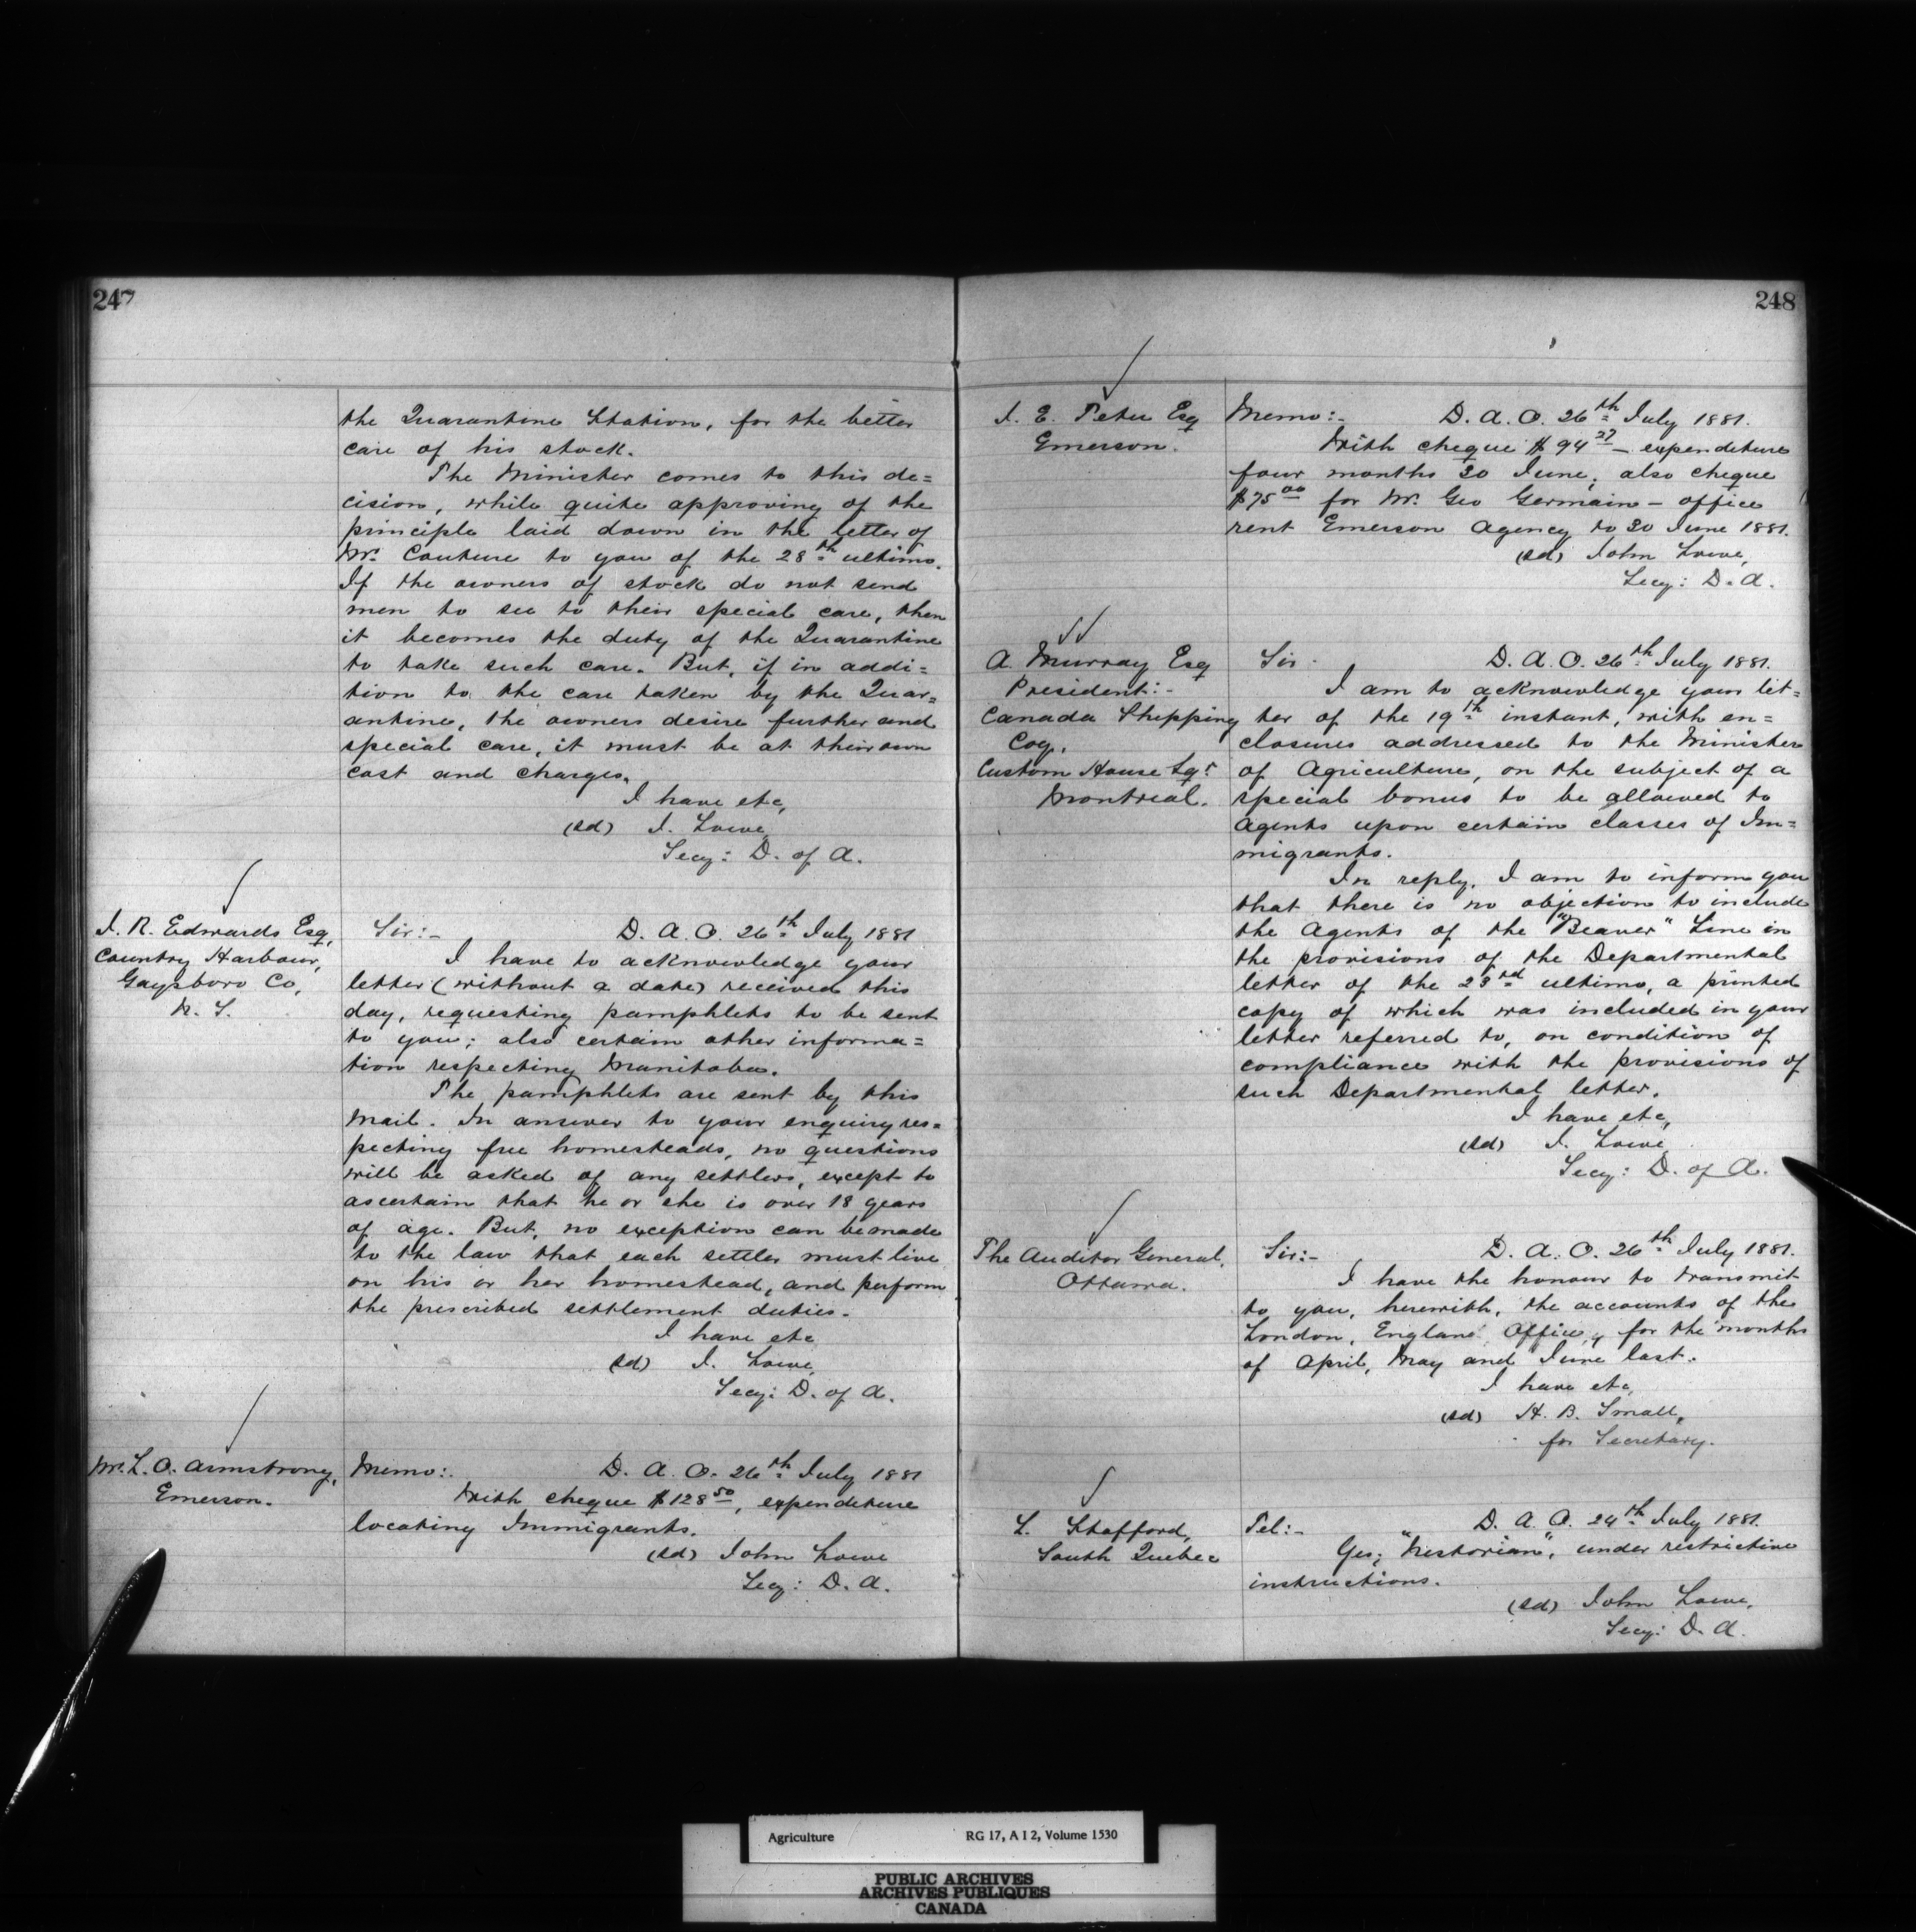 247
the Quarantine Station, for the better
care of his stock.
The Minister comes to this de=
cision, while quite approving of the
principle laid down in the letter of
Mr. Couture to you of the 28th ultimo.
If the owners of stock do not send
men to see to their special care, then
it becomes the duty of the Quarantine
to take such care. But, if in addi=
tion to the care taken by the Quar=
antine, the owners desire further and
special care, it must be at their own
cost and charges.
I have etc,
(sd) J. Lowe,
Secy: D. of A.
J. R. Edwards Esq,
Country Harbour,
Gaysboro Co,
N. S.
Sir:- D. A. O. 26th July 1881
I have to acknowledge your
letter (without a date) received this
day, requesting pamphlets to be sent
to you; also certain other informa=
tion respecting Manitoba.
The pamphlets are sent by this
mail. In answer to your enquiry res=
pecting free homesteads, no questions
will be asked of any settlers, except to
ascertain that he or she is over 18 years
of age. But, no exception can be made
to the law that each settler must live
on his or her homestead, and perform
the prescribed settlement duties.
I have etc
(sd) J. Lowe,
Secy: D. of A.
Mr. L. O. Armstrong,
Emerson.
Memo:. D. A. O. 26th July 1881
With cheque $128 50, expenditure
locating Immigrants.
(sd) John Lowe
Secy: D. A.
248
J. E. Tetu Esq
Emerson.
Memo:- D. A. O. 26th July 1881.
With cheque $94 27 - expenditure
four months 30 June; also cheque
$75 00 for Mr. Geo Germain - office
rent Emerson Agency to 30 June 1881.
(sd) John Lowe,
Secy: D. A.
A. Murray Esq
President:-
Canada Shipping
Coy.
Custom House Sqr
Montreal.
Sir- D. A. O. 26th July 1881.
I am to acknowledge your let=
ter of the 19th instant, with en=
closures addressed to the Minister
of Agriculture, on the subject of a
special bonus to be allowed to
Agents upon certain classes of Im=
migrants.
In reply, I am to inform you
that there is no objection to include
the Agents of the "Beaver" Line in
the provisions of the Departmental
letter of the 23rd ultimo, a printed
copy of which was included in your
letter referred to, on condition of
compliance with the provisions of
such Departmental letter.
I have etc,
(sd) J. Lowe,
Secy: D. of A.
The Auditor General,
Ottawa.
Sir:- D. A. O. 26th July 1881.
I have the honour to transmit
to you, herewith, the accounts of the
London, England Office, for the months
of April, May and June last.
I have etc,
(sd) H. B. Small,
for Secretary.
L. Stafford,
South Quebec
Tel:- D. A. O. 24th July 1881.
Yes; "Nestorian", under restrictive
instructions.
(sd) John Lowe,
Secy: D. A.
Agriculture RG 17, A I 2, Volume 1530
PUBLIC ARCHIVES
ARCHIVES PUBLIQUES
CANADA